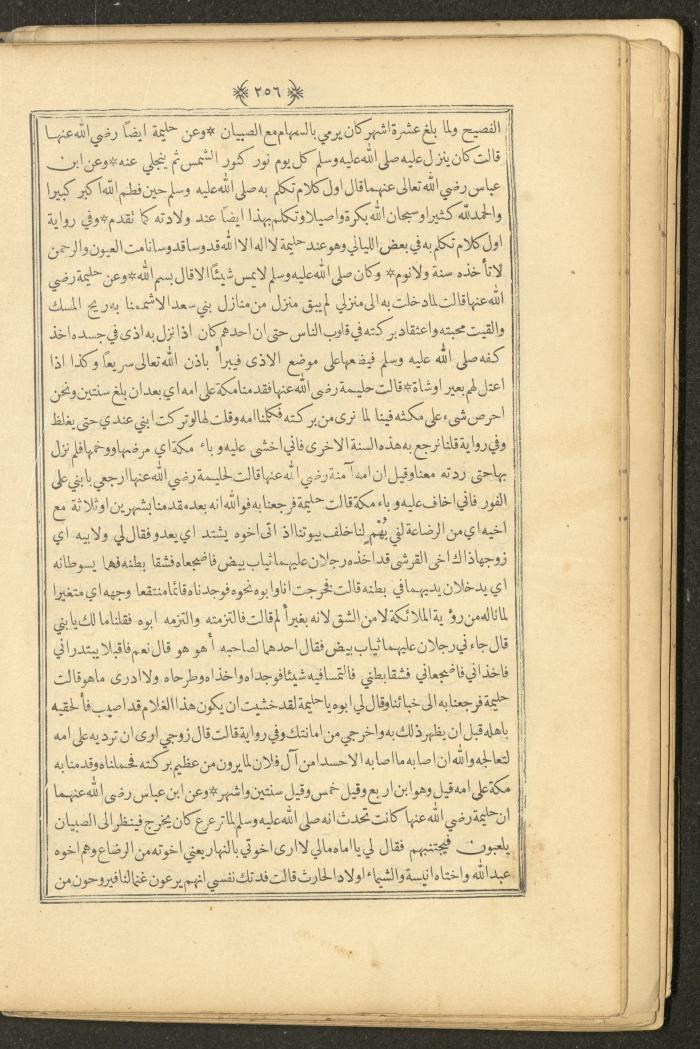 ٢٥٦
الفصيح ولما بلغ عشرة اشهر كان يرمي بالسهام مع الصبيان * وعن حليمة ايضاً رضي الله عنها
قالت كان ينزل عليه صلى الله عليه وسلم كل يوم نور كنور الشمس ثم ينجلي عنه * وعن ابن
عباس رضي الله تعالى عنهما قال اول كلام تكلم به صلى الله عليه وسلم حين فطم الله اكبر كبيرا
والحمد لله كثيرا وسبحان الله بكرة واصيلا وتكلم بهذا ايضاً عند ولادته كما تقدم * وفي رواية
اول كلام تكلم به في بعض الليالي وهو عند حليمة لا اله الا الله قدوسا قدوسا نامت العيون والرحمن
لا تأخذه سنة ولا نوم * وكان صلى الله عليه وسلم لا يمس شيئًا الا قال بسم الله * وعن حليمة رضي
الله عنها قالت لما دخلت به الى منزلي لم يبق منزل من منازل بني سعد الا شممنا به ريح المسك
والقيت محبته واعتقاد بركته في قلوب الناس حتى ان احدهم كان اذا نزل به اذى في جسده اخذ
كفه صلى الله عليه وسلم فيضعها على موضع الاذى فيبرأ باذن الله تعالى سريعاً وكذا اذا
اعتل لهم بعير او شاة * قالت حليمة رضي الله عنها فقدمنا مكة على امه اي بعد ان بلغ سنتين ونحن
احرص شيء على مكثه فينا لما نرى من بركته فكلمنا امه وقلت لها لو تركت ابني عندي حتى يغلظ
وفي رواية قلنا نرجع به هذه السنة الاخرى فاني اخشى عليه وباء مكة اي مرضها ووخمها فلم نزل
بها حتى ردته معنا وقيل ان امه آمنة رضي الله عنها قالت لحليمة رضي الله عنها ارجعي بابني على
الفور فاني اخاف عليه وباء مكة قالت حليمة فرجعنا به فوالله انه بعد مقدمنا بشهرين او ثلاثة مع
اخيه اي من الرضاعة لفي بُهْم لنا خلف بيوتنا اذ اتى اخوه يشتد اي يعدو فقال لي ولابيه اي
زوجها ذاك اخي القرشي قد اخذه رجلان عليهما ثياب بيض فاضجعاه فشقا بطنه فهما يسوطانه
اي يدخلان يديهما في بطنه قالت فخرجت انا وابوه نحوه فوجدناه قائما منتقعا وجهه اي متغيرا
لما ناله من رؤية الملائكة لا من الشق لانه بغير ألم قالت فالتزمته والتزمه ابوه فقلنا مالك يا بني
قال جاءني رجلان عليهما ثياب بيض فقال احدهما لصاحبه أهو هو قال نعم فاقبلا يبتدراني
فاخذاني فاضجعاني فشقا بطني فالتمسا فيه شيئا فوجداه واخذاه وطرحاه ولا ادرى ما هو قالت
حليمة فرجعنا به الى خبائنا وقال لي ابوه يا حليمة لقد خشيت ان يكون هذا الغلام قد اصيب فألحقيه
باهله قبل ان يظهر ذلك به واخرجي من امانتك وفي رواية قالت قال زوجي ارى ان ترديه على امه
لتعالجه والله ان اصابه ما اصابه الا حسد من آل فلان لما يرون من عظيم بركته فحملناه وقدمنا به
مكة على امه قيل وهو ابن اربع وقيل خمس وقيل سنتين واشهر * وعن ابن عباس رضى الله عنهما
ان حليمة رضي الله عنها كانت تحدث انه صلى الله عليه وسلم لما ترعرع كان يخرج فينظر الى الصبيان
يلعبون فيجتنبهم فقال لي يا اماه مالي لا ارى اخوتي بالنهار يعني اخوته من الرضاع وهم اخوه
عبد الله واختاه انيسة والشيماء اولاد الحارث قالت فدتك نفسي انهم يرعون غنما لنا فيروحون من